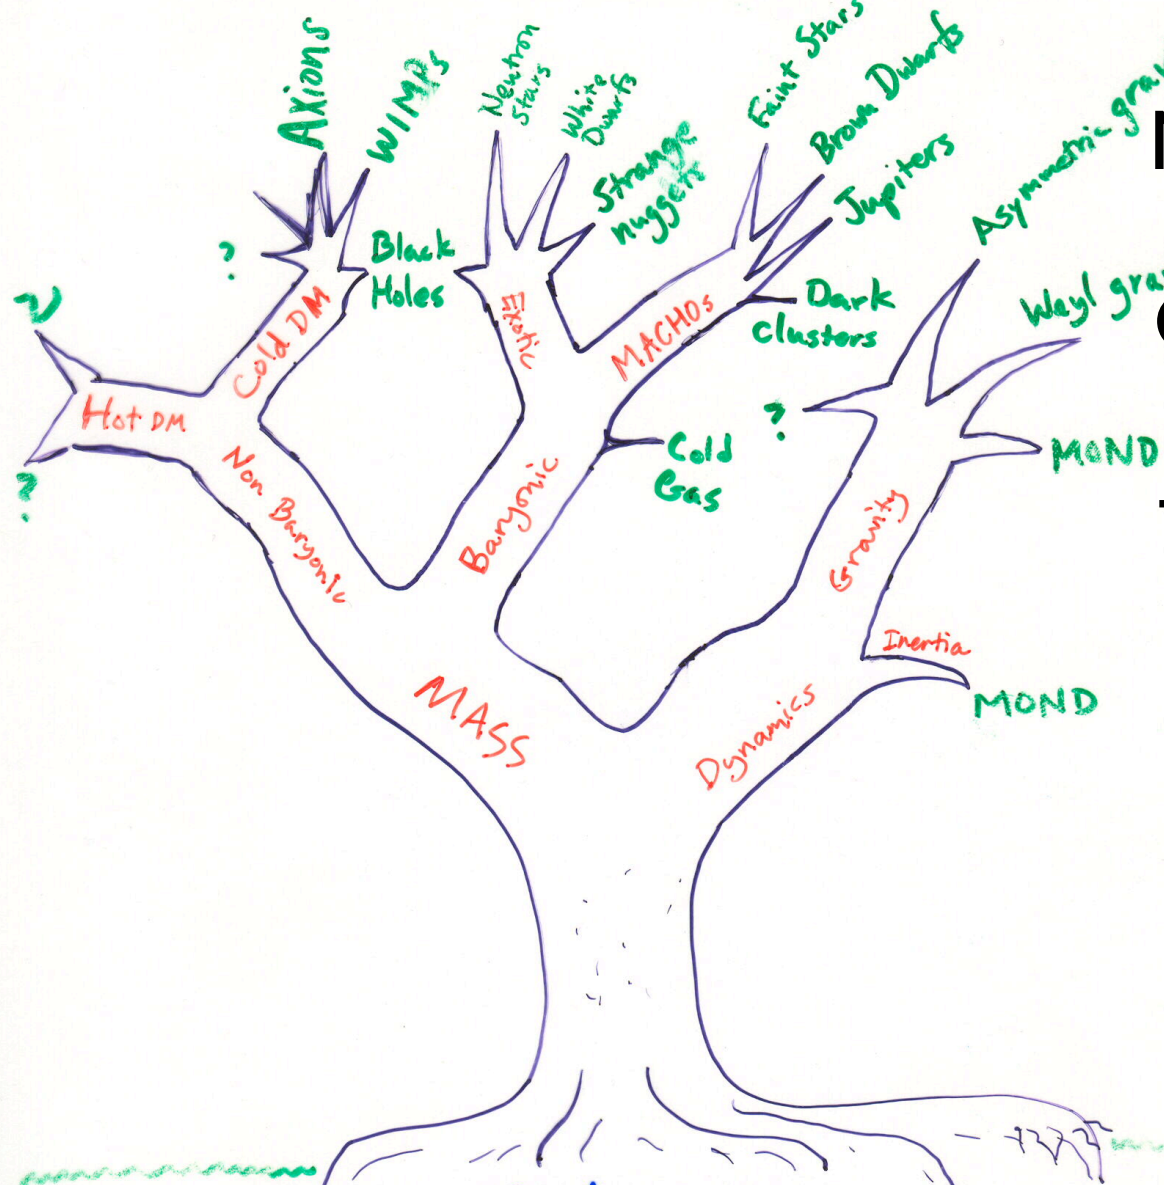 Axions
WIMPs
Neutron
Stars
White
Dwarfs
Strange
nuggets
Faint Stars
Brown Dwarfs
Jupiters
Asymmetric gra
Weyl gra
?
Black
Holes
Dark
clusters
ν
Cold DM
Exotic
MACHOs
Hot DM
?
?
Cold
Gas
MOND
Non Baryonic
Baryonic
Gravity
Inertia
MOND
MASS
Dynamics